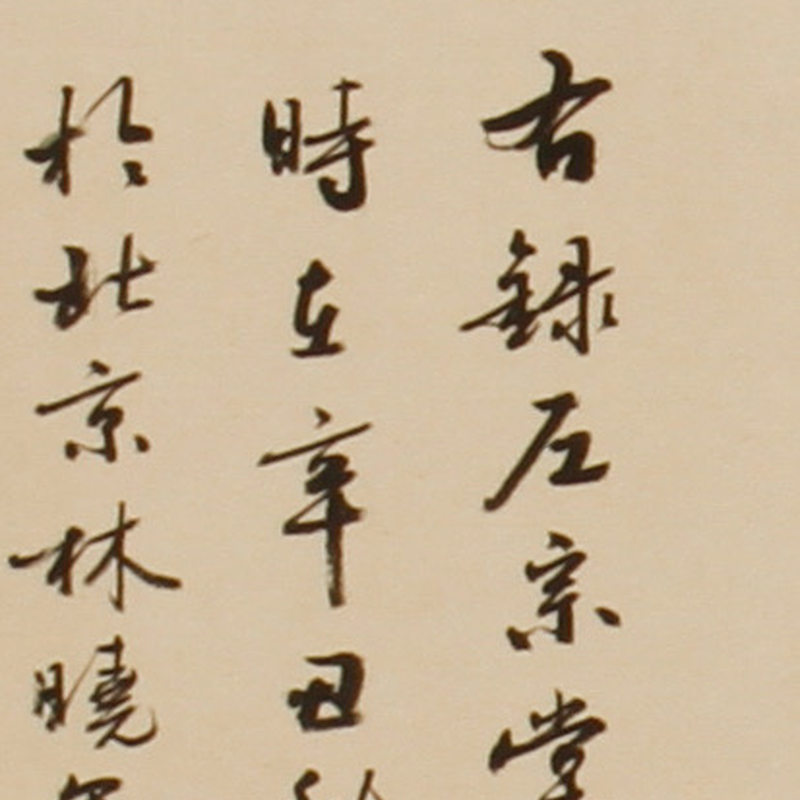 右錄左宗棠
時在辛丑秋
於北京林曉